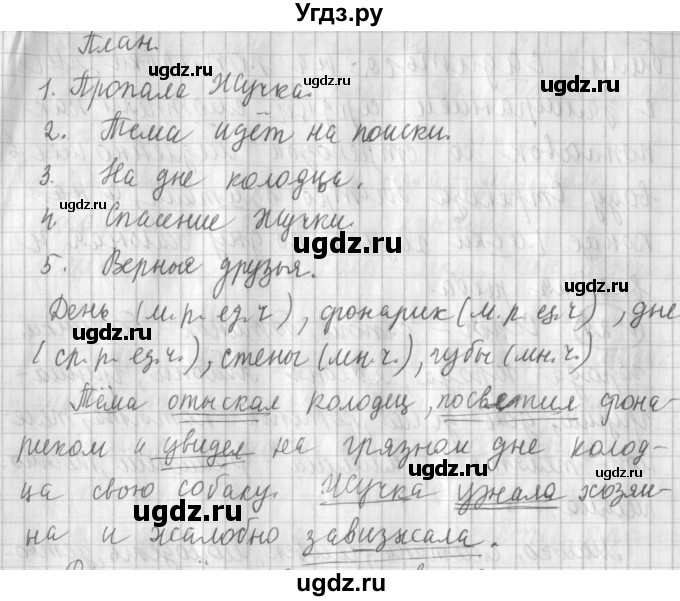 Угдз.ру
План.
1. Пропала Жучка.
2. Тёма идёт на поиски.
3. На дне колодца.
4. Спасение Жучки.
5. Верные друзья.
День – (м. р. ед. ч), фонарик (м. р. ед. ч), дне
(ср. р. ед. ч.), стены (мн. ч.), губы (мн. ч.)
Тёма отыскал колодец, посветил фона-
риком и увидел на грязном дне колод-
ца свою собаку. Жучка узнала хозяи-
на и жалобно завизжала.
ugdz.ru
ugdz.ru
ugdz.ru
ugdz.ru
ugdz.ru
ugdz.ru
ugdz.ru
ugdz.ru
ugdz.ru
ugdz.ru
ugdz.ru
ugdz.ru
ugdz.ru
ugdz.ru